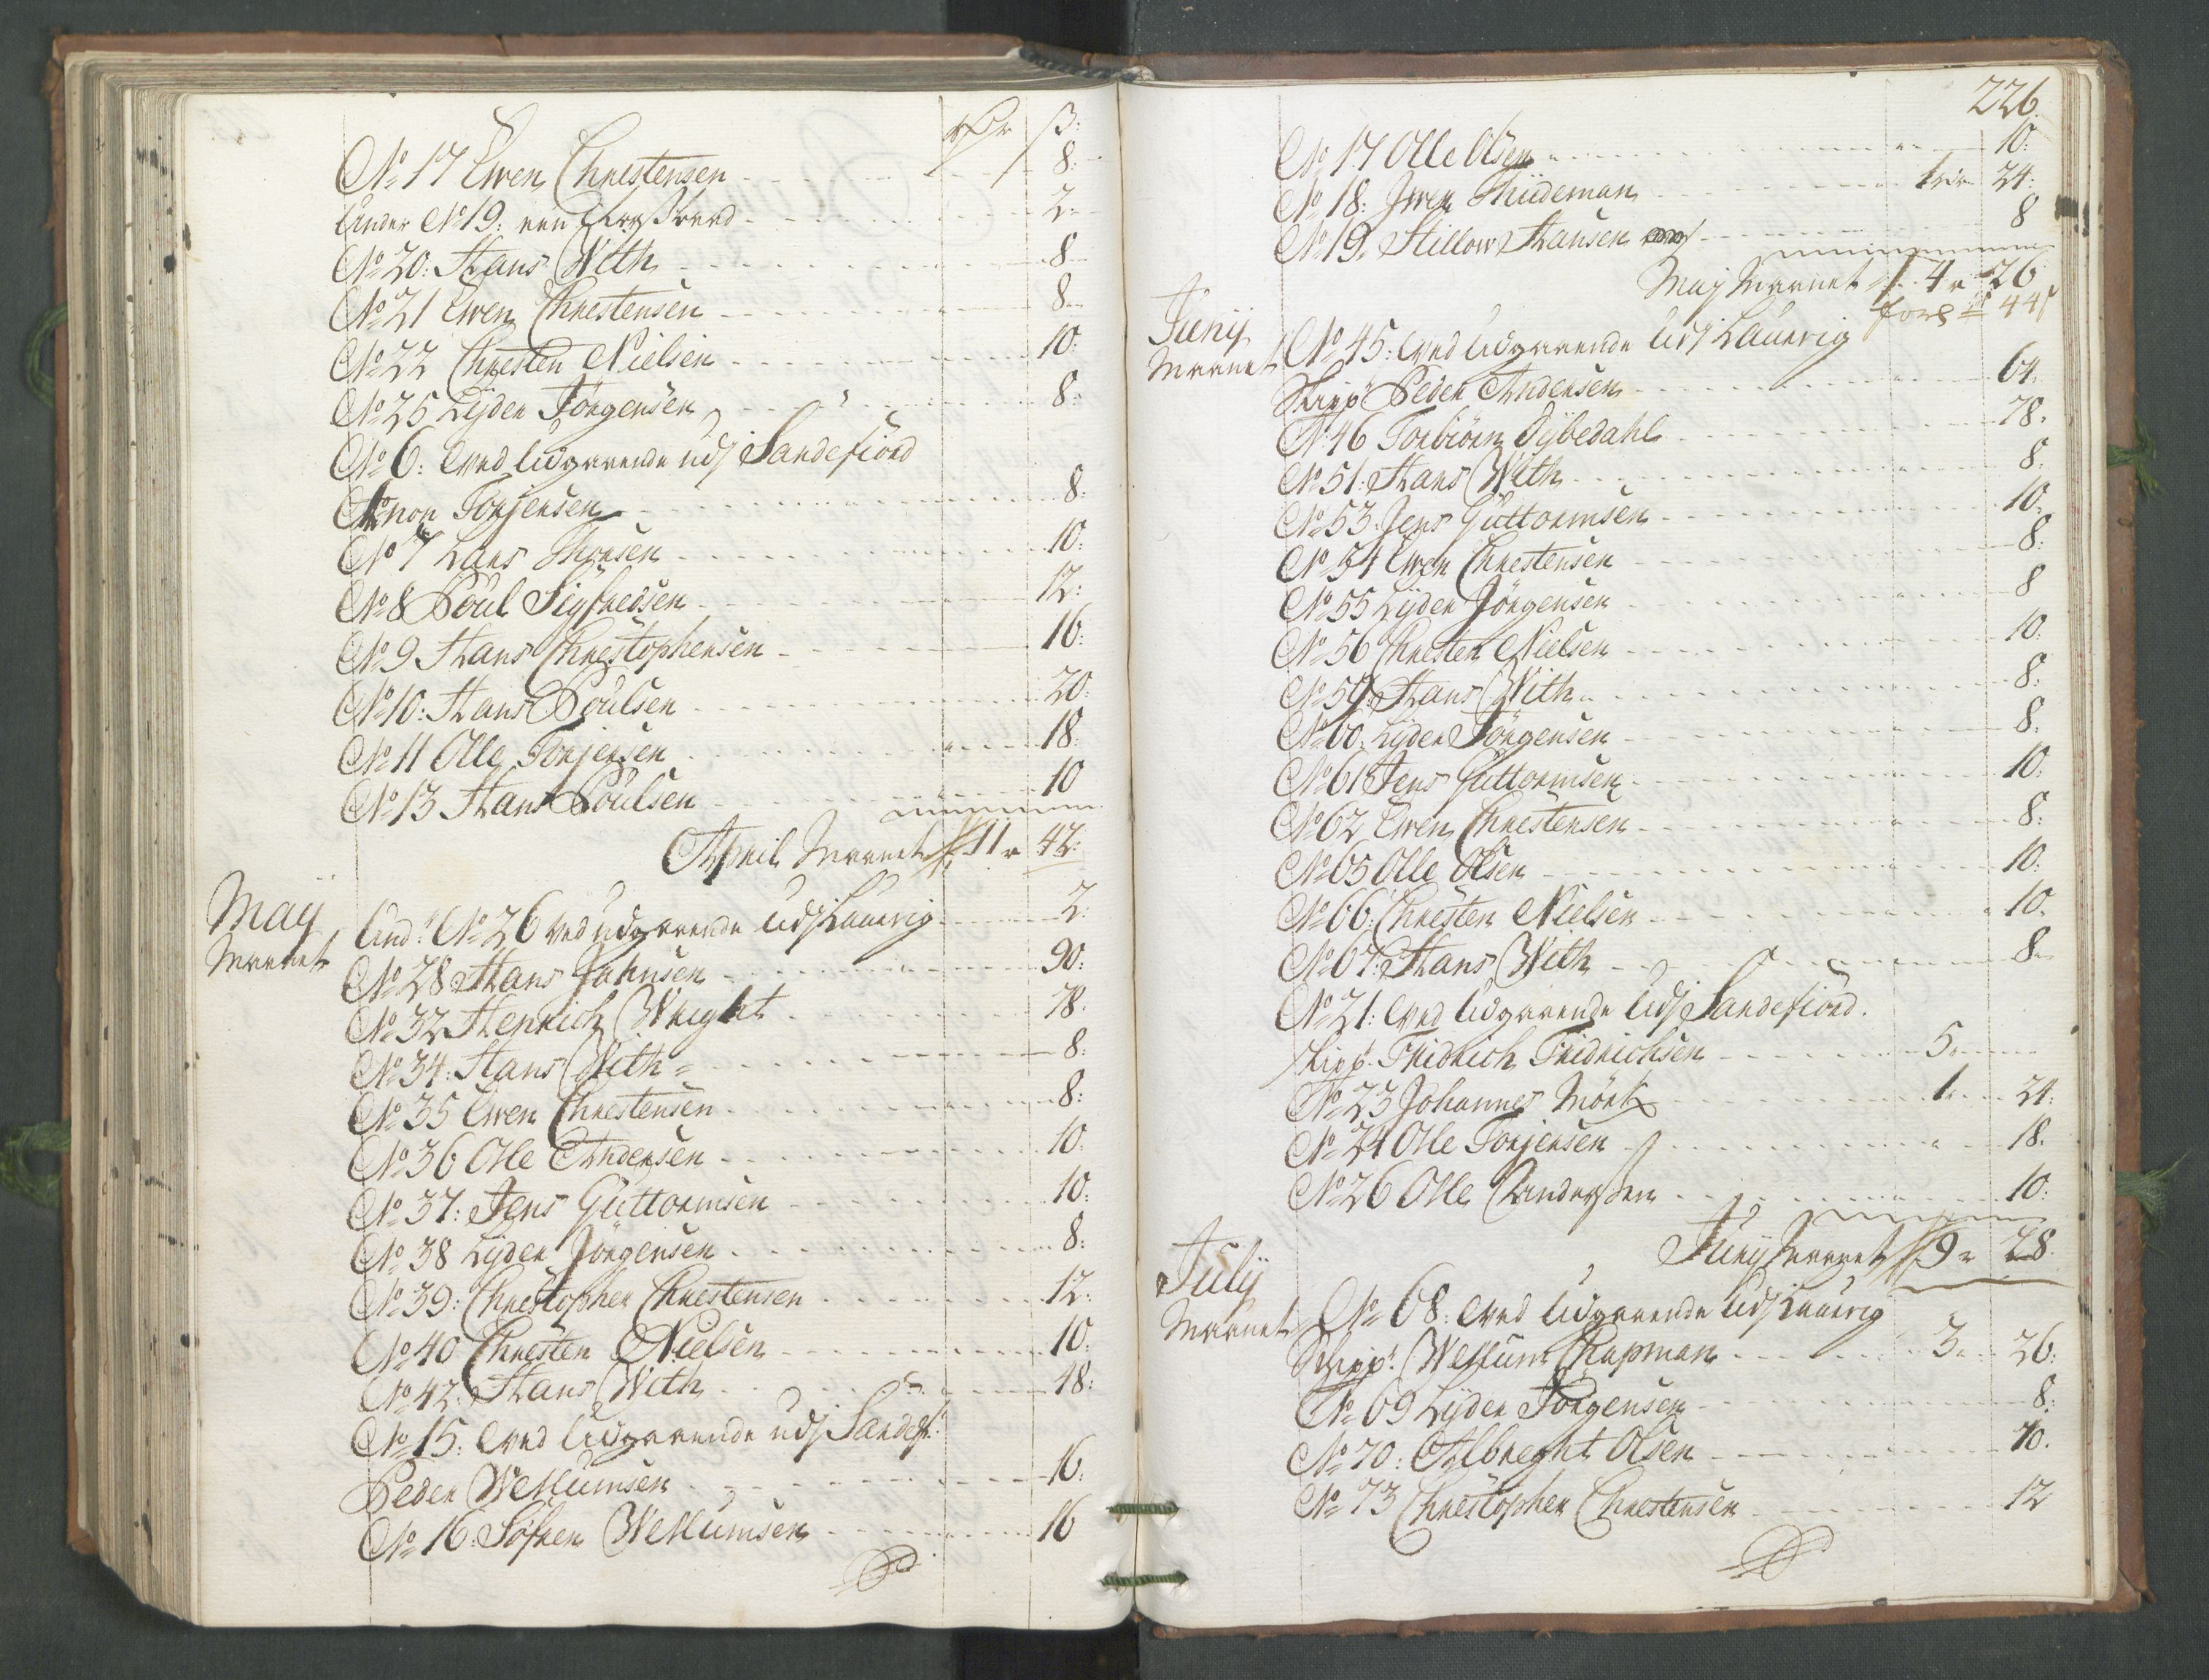 rdr ß:
No 17 Ewen Chrestensen 8:
Under No 19: een 2:
No 20: Hans With 8
No 21 Ewen Chrestensen 8
No 22 Chresten Nielsen 10:
No 25 Lyder Jörgensen 8:
No 6: Ved Udgaaende udj Sandefiord
Torjersen 8:
No 7 Lars Thorsen 10:
No 8 Poul Sigfredsen 12:
No 9 Hans Chrestophersen 16:
No 10: Hans Poulsen 20:
No 11 Olle Torjersen 18:
No 13 Hans Poulsen 10
April Maanet 11 r 42:
Maij
Maanet
Und: No 26 ved udgaaende Udj Laurvig 2:
No 28 Hans Johnsen 90:
No 32 Henrich Wright 78.
No 34: Hans With 8:
No 35 Ewen Chrestensen 8:
No 36 Olle Andersen 10:
No 37: Jens Guttormsen 10:
No 38 Lyder Jörgensen 8:
No 39: Chrestopher Chrestensen 12:
No 40 Chresten Nielsen 10:
No 42: Hans With 18:
No 15: Ved Udgaaende udj Sandef:
Peder Wellumsen 16:
No 16: Söfren Wellumsen 16
226.
No 17 Olle Olsen 10:
No 18: Iwer Thiideman 1 rdr 24:
No 19. Hillow Hansen 8
Maj Maanet 4 r 26
44 ß
Junij
Maanet
No 45: Ved Udgaaende Udj Laurvig
Skipp Peder Andersen 64.
No 46 Torbiörn Dybedahl 78.
No 51: Hans With 8.
No 53. Jens Guttormsen 10.
No 54 Ewen Chrestensen 8:
No 55 Lyder Jörgensen 8
No 56 Chresten Nielsen 10:
No 59: Hans With 8:
No 60. Lyder Jörgensen 8:
No 61 Jens Guttormsen 10:
No 62 Ewen Chrestensen 8:
No 65 Olle Olsen 10:
No 66: Chresten Nielsen 10.
No 67: Hans With 8
No 21: Ved Udgaaende Udj Sandefiord.
skipp: Fridrich Fridrichsen 5.
No 23 Johannes Mörk 1. 24.
No 24 Olle Torjersen 18.
No 26 Olle Anderssen 10:
Junij Maanet 9 r 28.
Julij
Maanet
No 68: Ved Udgaaende Udj Laurvig
Schipp: Wellum Chapman 3. 26:
No 69 Lyder Jörgensen 8:
No 70: Albreght Olsen 10.
No 73 Chrestopher Chrestensen 12